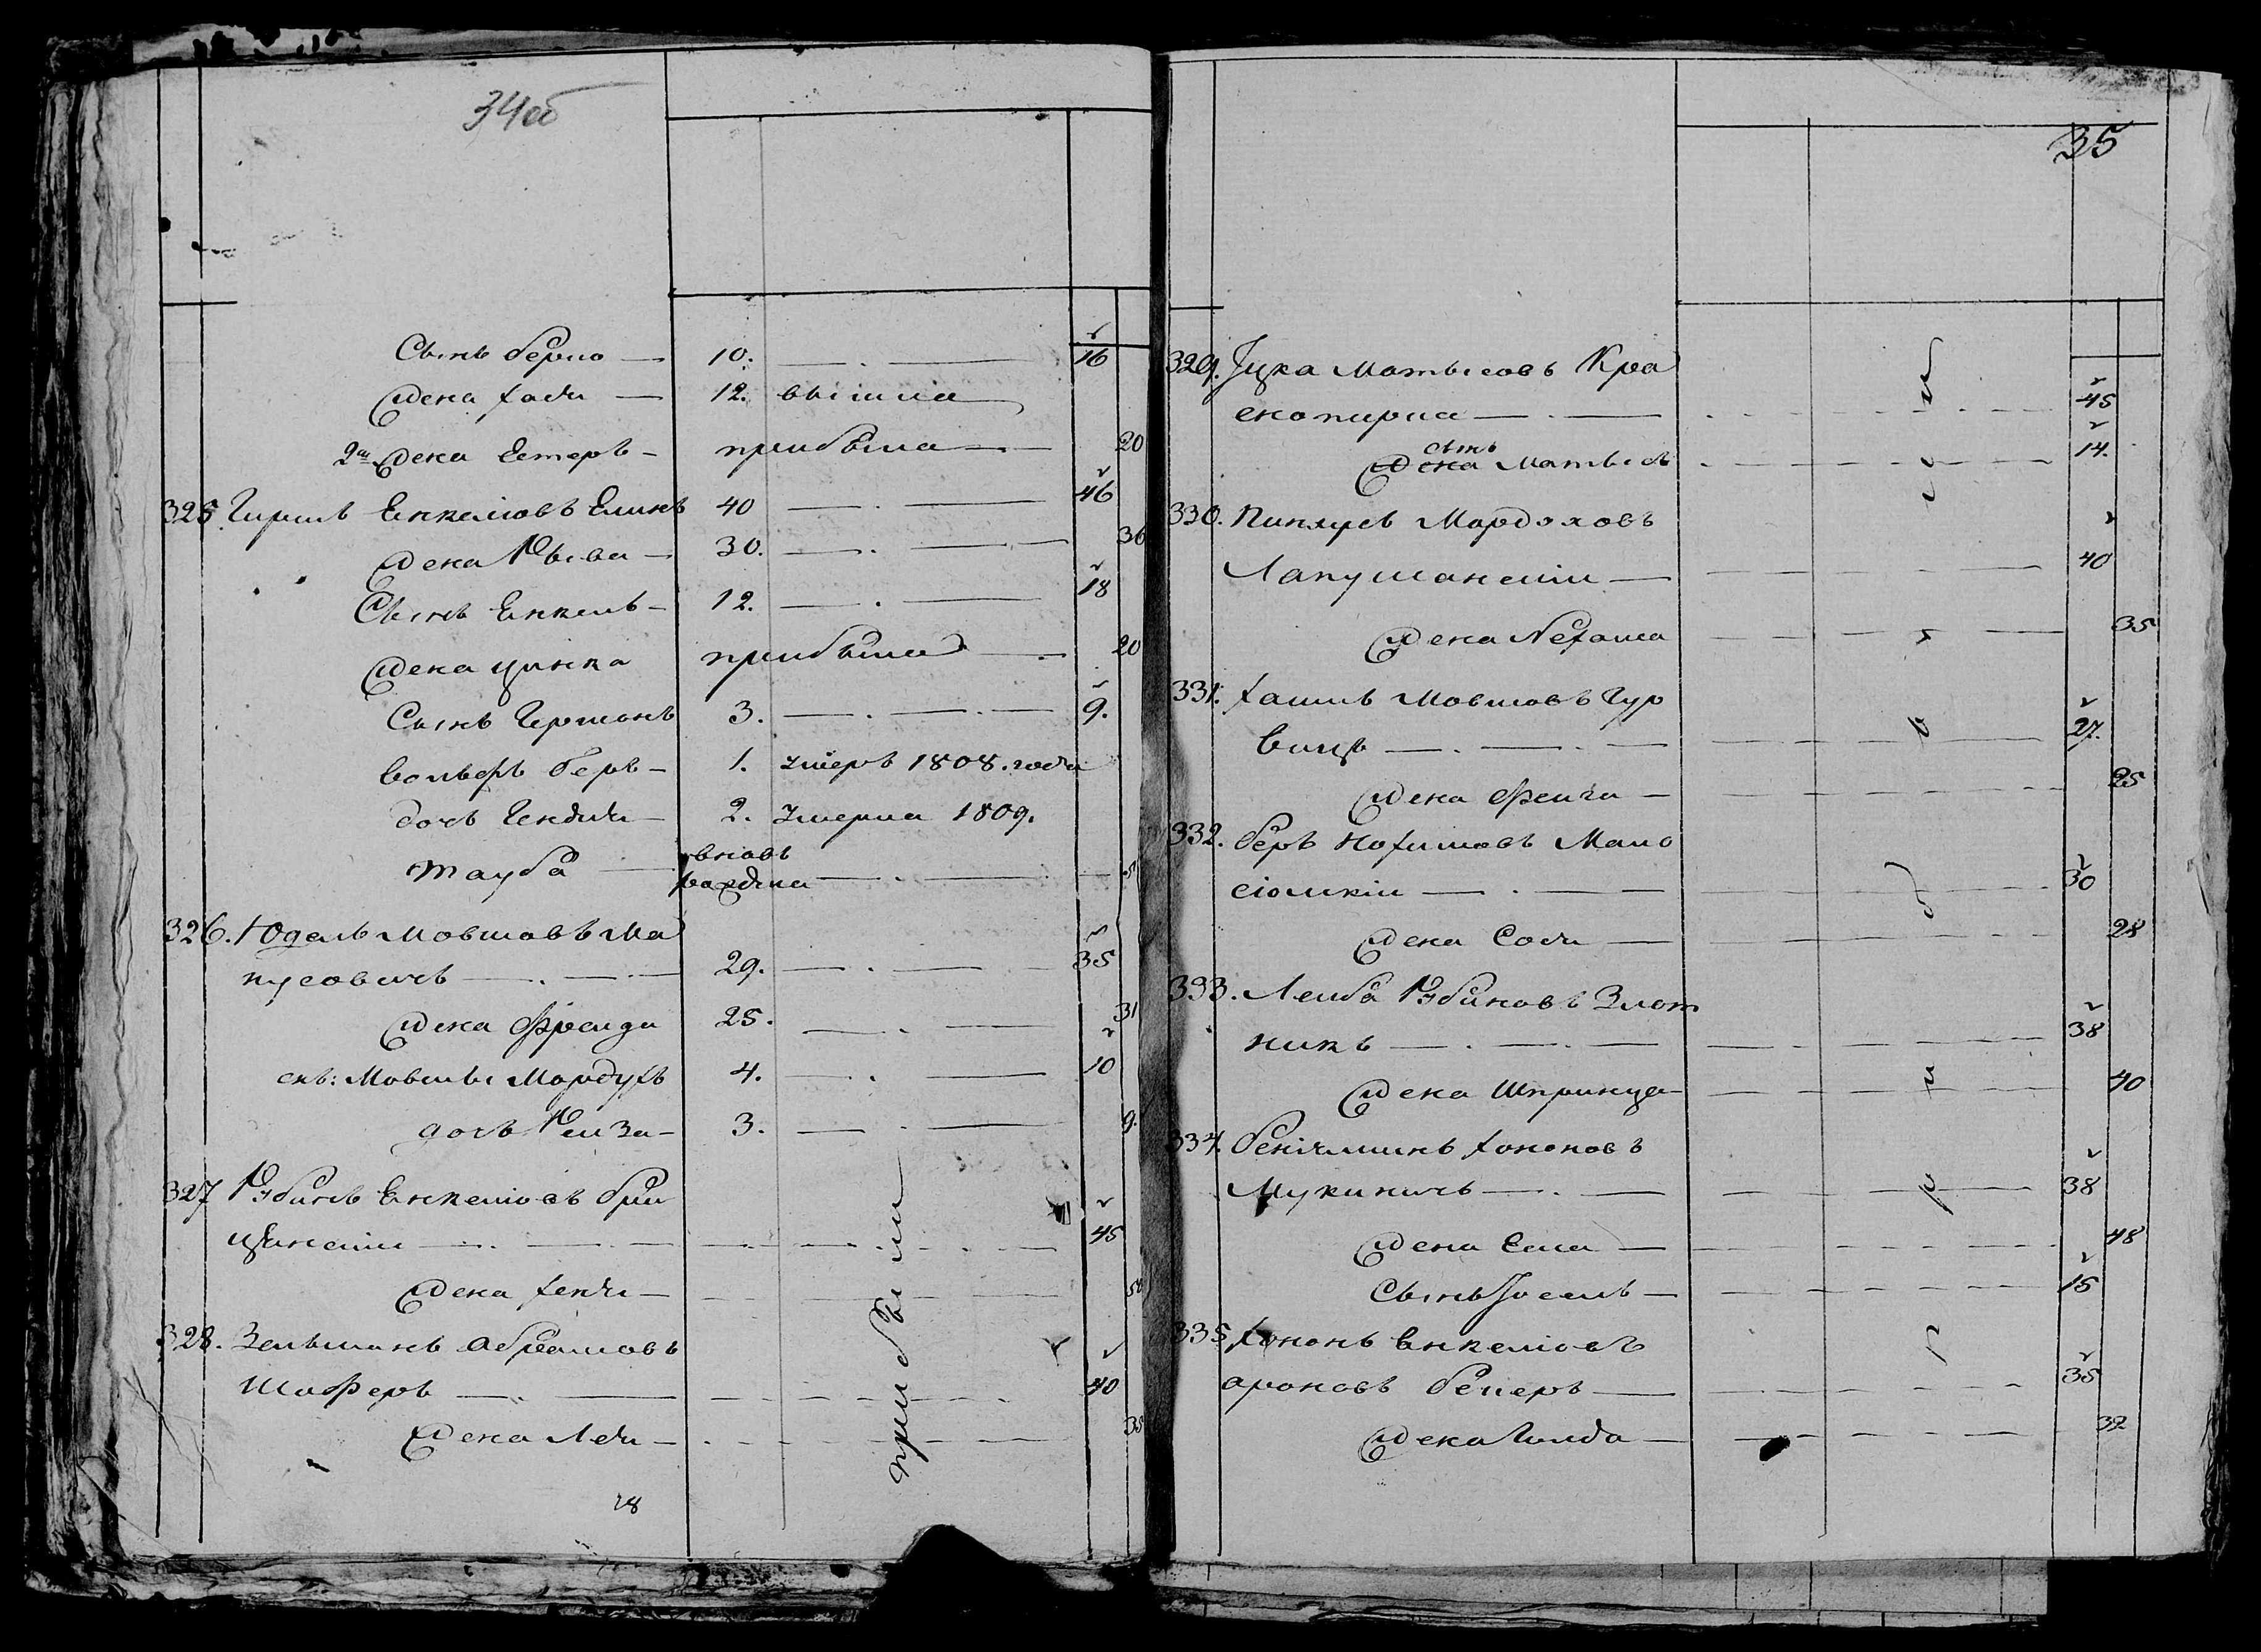 34об
Сынъ берко — 10. — . — 16
Жена хася — 12. вышла
2я Жена Естеръ — прибыла — 20
325. Гиршъ Енкелiовъ Елинъ 40 — . — 46
Жена Рыва — 30. — . — 36
Сынъ Енкель — 12. — . — 18
Жена цинка прибыла — . 20
Сынъ Гершонъ 3. — . — . — 9.
вольфъ беръ — 1. умеръ 1808. года
дочь Гендля — 2. умерла 1809.
Тауба — вновь
рождена — . — 5
326. Юдель Мовшовъ Ма
пусовичъ — . — . — 29. — . — 35
Жена Фрейда 25. — . — 31
снъ: Мовшы Мордухъ 4. — . — 10
дочь Рейза — 3. — . — 9.
327 Рубинъ Енкелiовъ бри
чанскiй — . — . — 45
Жена хенья — 50
328. Зельманъ Абрамовъ
Шоферъ — . — 40
Жена Лея — 35
прибыли
28
35
329. Іцка Мотысовъ Кра
снопирка — . — 45
сынъ
Жена Мотысъ 14.
330. Пинхусъ Мордоховъ
Лапушанскiй — 40
Жена Нехама 35
331. хаимъ Мовшовъ Гур
вицъ — . — . — 27.
Жена Фейга — 25
332. беръ Нохимовъ Мало
сiолкiй — . — 30
Жена Сося — 28
333. Лейба Рубиновъ Злот
никъ — . — . — 38
Жена Шпринца — 40
334. бенiяминъ хононовъ
Мукиничъ — . — 38
Жена Елка — 48
Сынъ Іосель — 15
335 хононъ Енкелiовъ
ароновъ бекеръ — 35
Жена Голда — 32